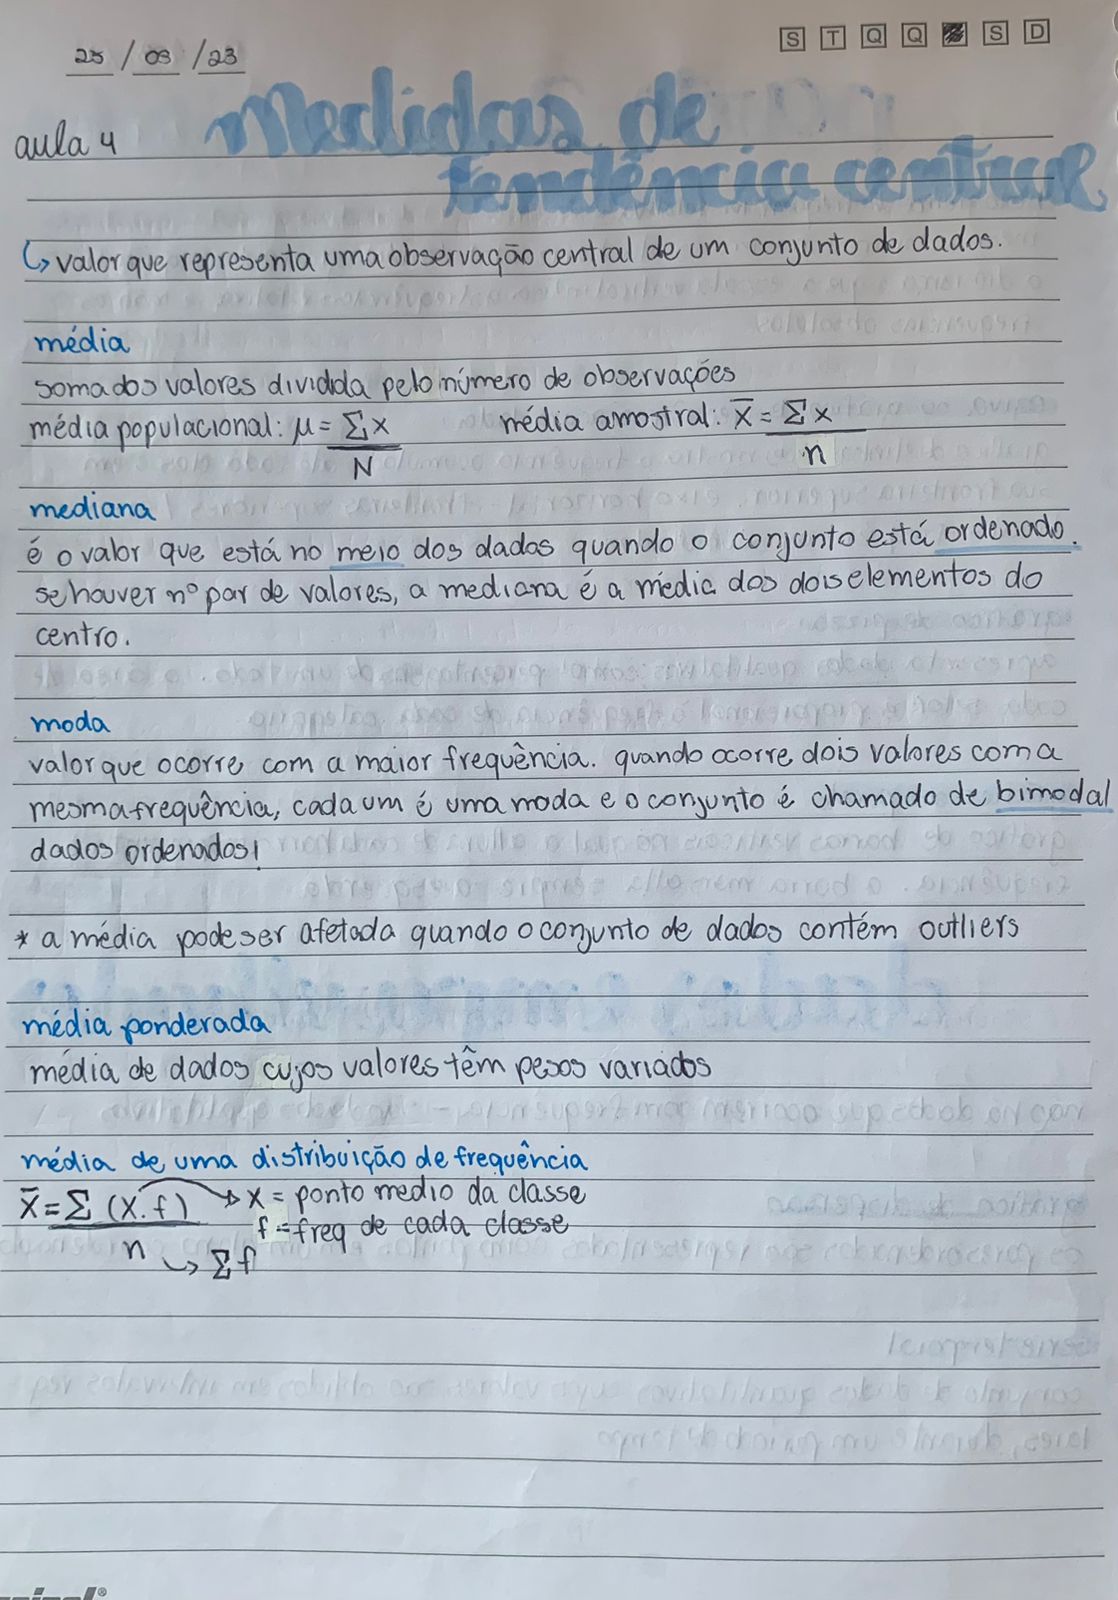 25 / 03 / 23
S T Q Q S D
aula 4
Medidas de
tendência central
↳ valor que representa uma observação central de um conjunto de dados.
média
soma dos valores dividida pelo número de observações
média populacional: μ = Σx / N média amostral: x̄ = Σx / n
mediana
é o valor que está no meio dos dados quando o conjunto está ordenado.
se houver nº par de valores, a mediana é a média dos dois elementos do
centro.
moda
valor que ocorre com a maior frequência. quando ocorre dois valores com a
mesma frequência, cada um é uma moda e o conjunto é chamado de bimodal
dados ordenados!
* a média pode ser afetada quando o conjunto de dados contém outliers
média ponderada
média de dados cujos valores têm pesos variados
média de uma distribuição de frequência
x̄ = Σ (x.f) / n → x = ponto medio da classe
f = freq de cada classe
↳ Σf